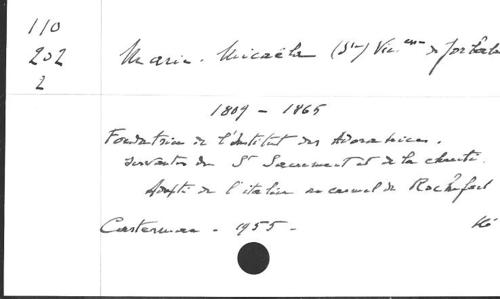 110
202
2
Marie-Micaëla (Ste) Vicesse de Jorbalan
1809 - 1865
Fondatrice de l'Institut des Adoratrices.
servantes du St Sacrement et de la charité.
Adapté de l'italien au carmel de Rochefort
Casterman - 1955 -